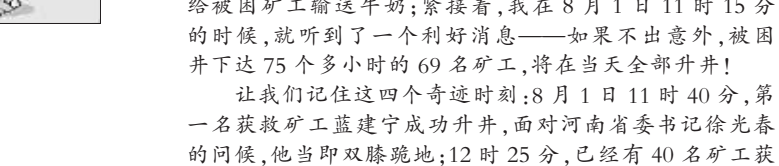 给被困矿工输送牛奶;紧接着,我在 8 月 1 日 11 时 15 分
的时候,就听到了一个利好消息——如果不出意外,被困
井下达 75 个多小时的 69 名矿工,将在当天全部升井!
让我们记住这四个奇迹时刻:8 月 1 日 11 时 40 分,第
一名获救矿工蓝建宁成功升井,面对河南省委书记徐光春
的问候,他当即双膝跪地;12 时 25 分,已经有 40 名矿工获